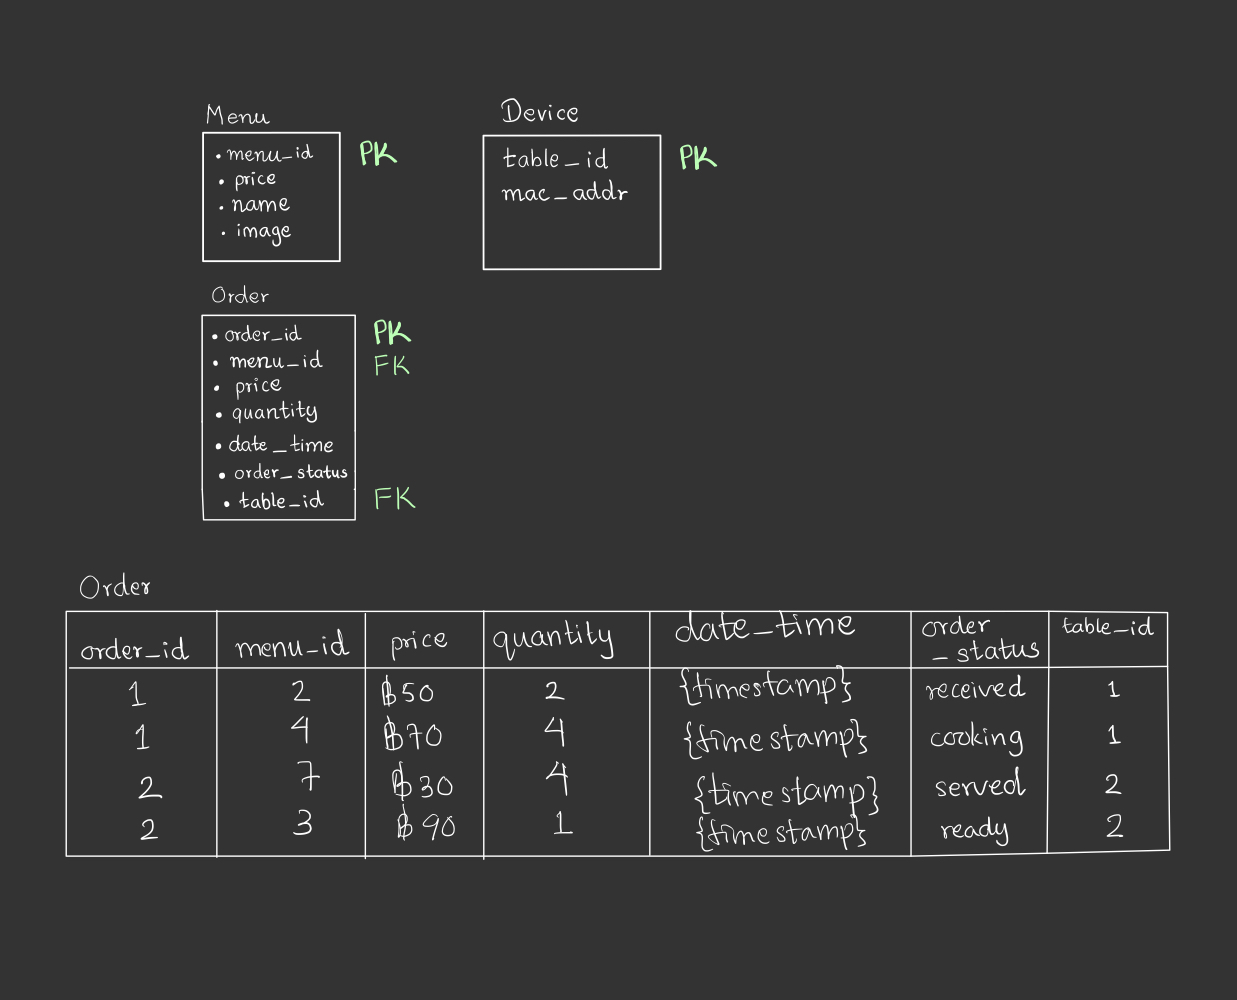 Menu
• menu_id PK
• price
• name
• image
Device
table_id PK
mac_addr
Order
• order_id PK
• menu_id FK
• price
• quantity
• date_time
• order_status
• table_id FK
Order
order_id menu_id price quantity date_time order_status table_id
1 2 ฿50 2 {timestamp} received 1
1 4 ฿70 4 {timestamp} cooking 1
2 7 ฿30 4 {timestamp} served 2
2 3 ฿90 1 {timestamp} ready 2